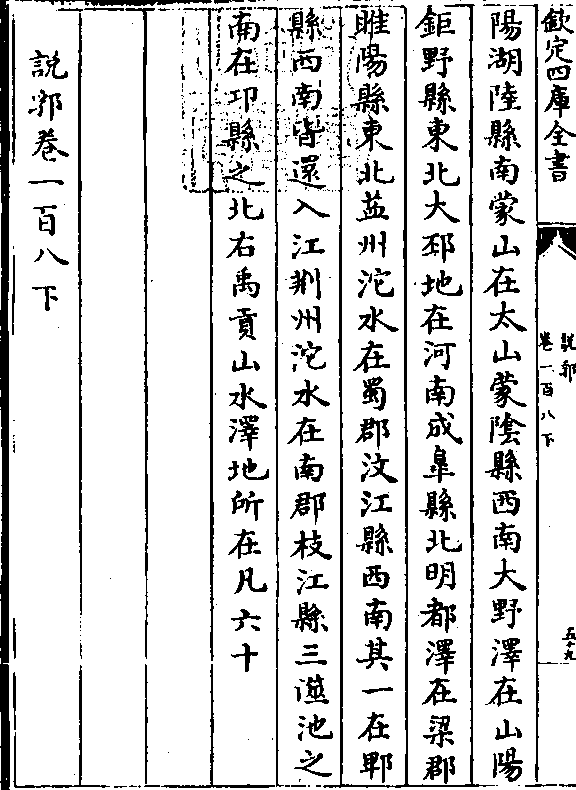 欽定四庫全書
說郛
卷一百八下
五十九
陽湖陸縣南蒙山在太山蒙陰縣西南大野澤在山陽
鉅野縣東北大邳地在河南成臯縣北明都澤在梁郡
睢陽縣東北益州沱水在蜀郡汶江縣西南其一在郫
縣西南皆還入江荆州沱水在南郡枝江縣三澨池之
南在邔縣之北右禹貢山水澤地所在凡六十
說郛卷一百八下